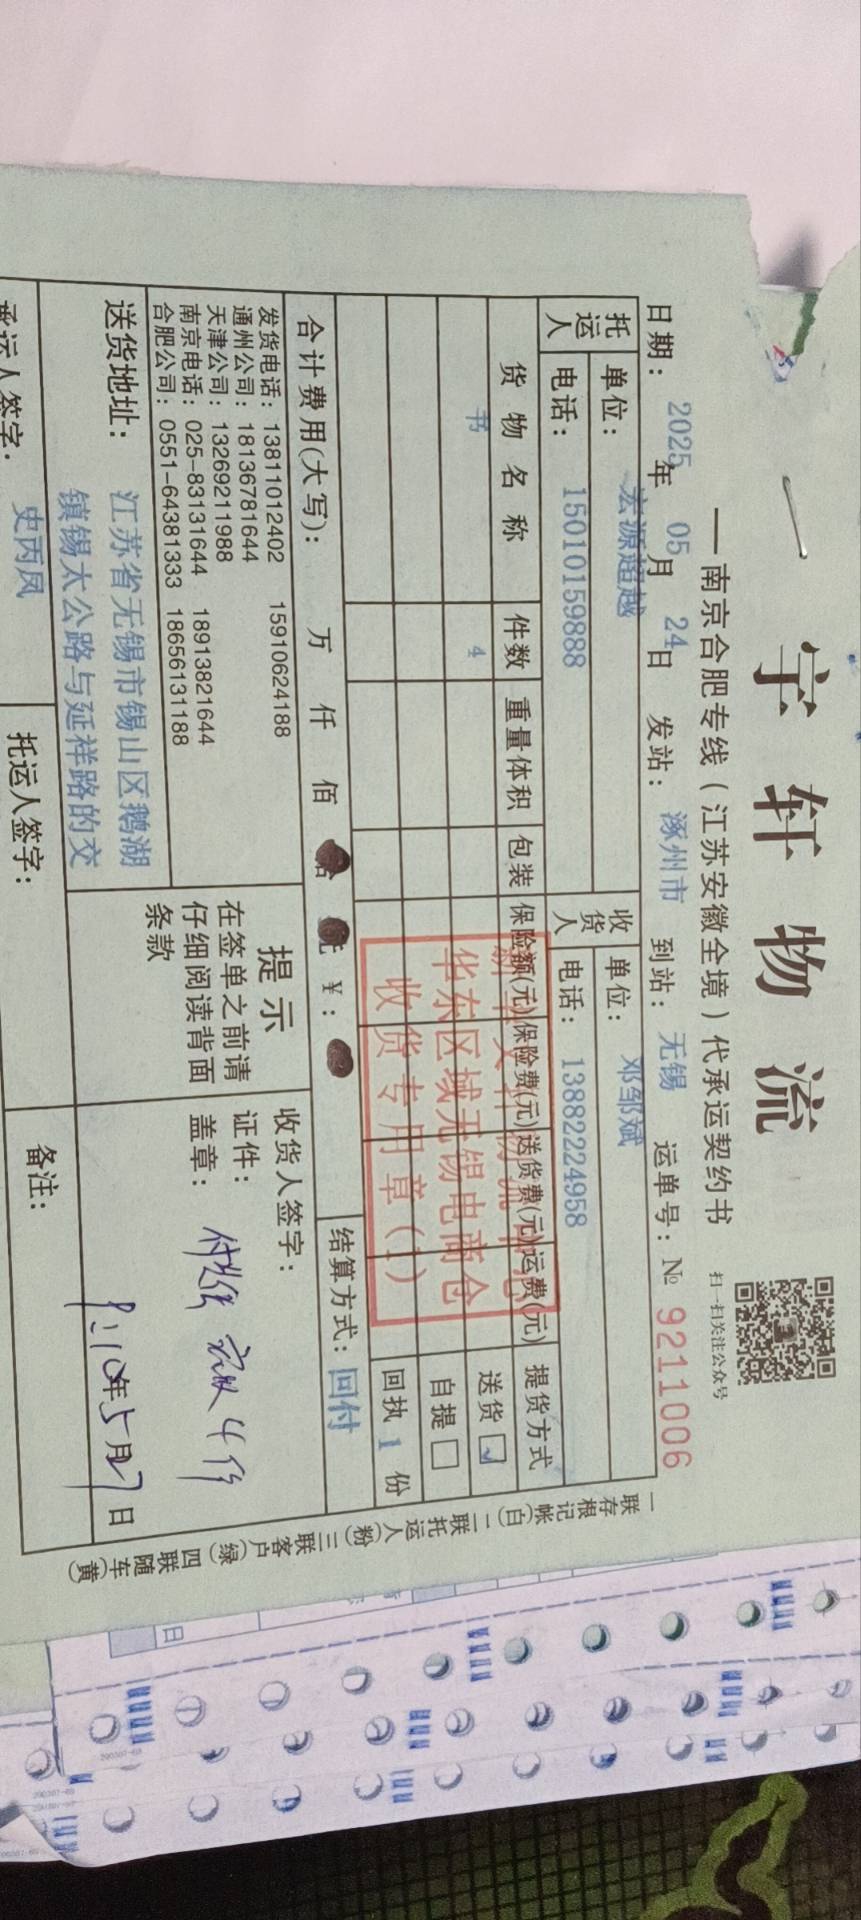 一字轩物流
—南京合肥专线(江苏安徽全境)代承运契约书
扫一扫关注公众号
日期: 2025年 05月 24日 发站: 涿州市 到站: 无锡 运单号: № 9211006
托运人 单位: 宏源超越 收货人 单位: 邓邹斌
电话: 15010159888 电话: 13882224958
货物名称 件数 重量体积 包装 保险额(元) 保险费(元) 送货费(元) 运费(元) 提货方式
书 4 送货
自提
回执 1 份
华东区域无锡电商仓
收货专用章(1)
合计费用(大写): 万 仟 佰 ¥: 结算方式: 回付
发货电话: 13811012402 15910624188
通州公司: 18136781644
天津公司: 13269211988
南京电话: 025-83131644 18913821644
合肥公司: 0551-64381333 18656131188
提示
在签单之前请
仔细阅读背面
条款
收货人签字:
证件:
盖章:
4件
年5月27日
送货地址: 江苏省无锡市锡山区鹅湖
镇锡太公路与延祥路的交
备注:
承运人签字: 史丙凤 托运人签字:
一联存根记帐(白) 二联托运人(粉) 三联客户(绿) 四联随车(黄)